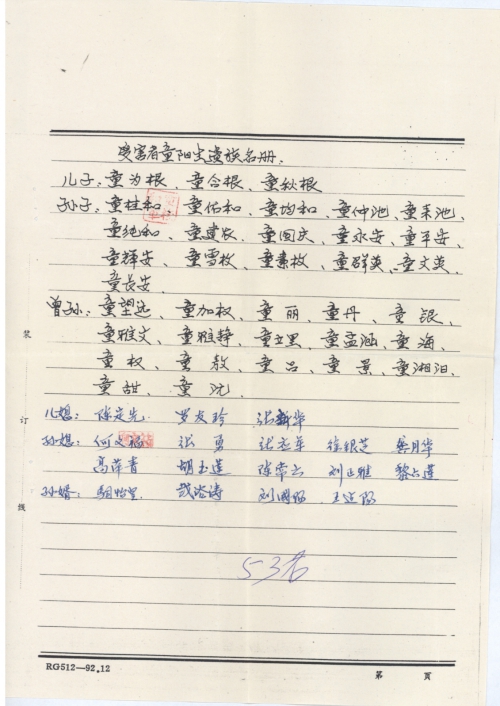 受害者童阳生遗族名册.
儿子: 童为根、童合根、童秋根
孙子: 童桂和、童佑和、童均和、童仲池、童来池、
童纯和、童建农、童国庆、童永安、童平安、
童辉安、童雪枚、童素枚、童群英、童文英、
童长安、
曾孙: 童望远、童加权、童丽、童丹、童银、
童雅文、童雅静、童立里、童孟涵、童海、
童权、童敖、童吕、童景、童湘汨、
童甜、童沈.
儿媳: 陈定先 罗友珍 张新华
孙媳: 何文福 张勇 徐银芝 樊月华
高萍青 胡玉莲 陈常云 刘正雅 黎占莲
孙婿:
53名
装
订
线
RG512—92.12
第 页